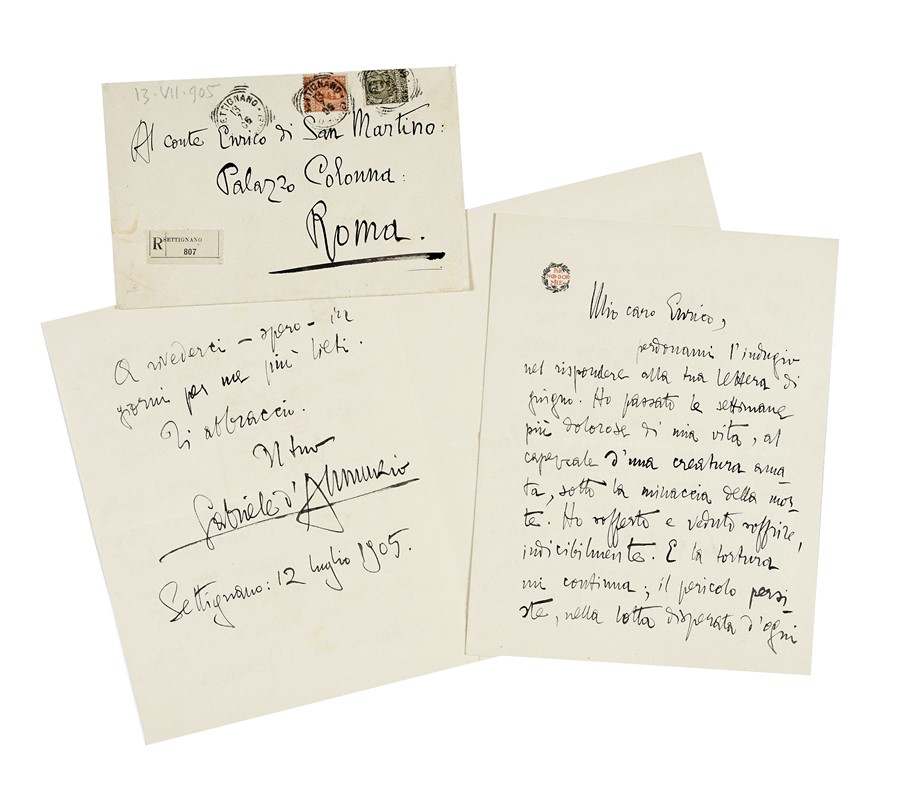 13·VII·905
SETTIGNANO
Al conte Enrico di San Martino:
Palazzo Colonna:
Roma.
R SETTIGNANO
807
Mio caro Enrico,
perdonami l'indugio
nel rispondere alla tua lettera di
giugno. Ho passato le settimane
più dolorose di mia vita, al
capezzale d'una creatura ama-
ta, sotto la minaccia della mor-
te. Ho sofferto e veduto soffrire,
indicibilmente. E la tortura
mi continua; il pericolo persi-
ste, nella lotta disperata d'ogni
A rivederci – spero – in
giorni per me più lieti.
Ti abbraccio.
Il tuo
Gabriele d'Annunzio
Settignano: 12 luglio 1905.